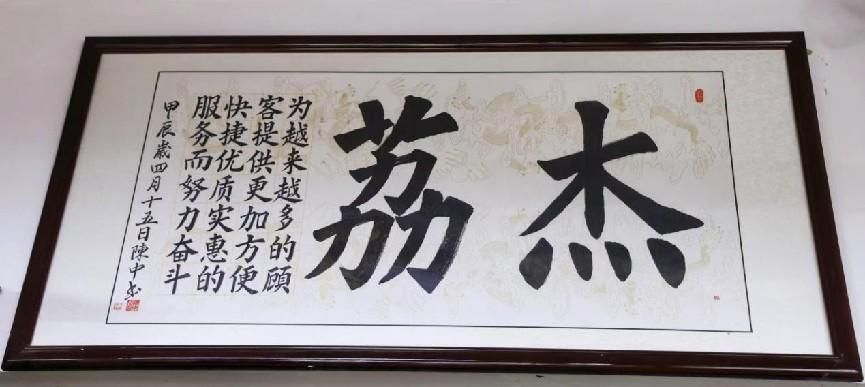 杰荔
为越来越多的顾
客提供更加方便
快捷优质实惠的
服务而努力奋斗
甲辰歲四月十五日陳中书